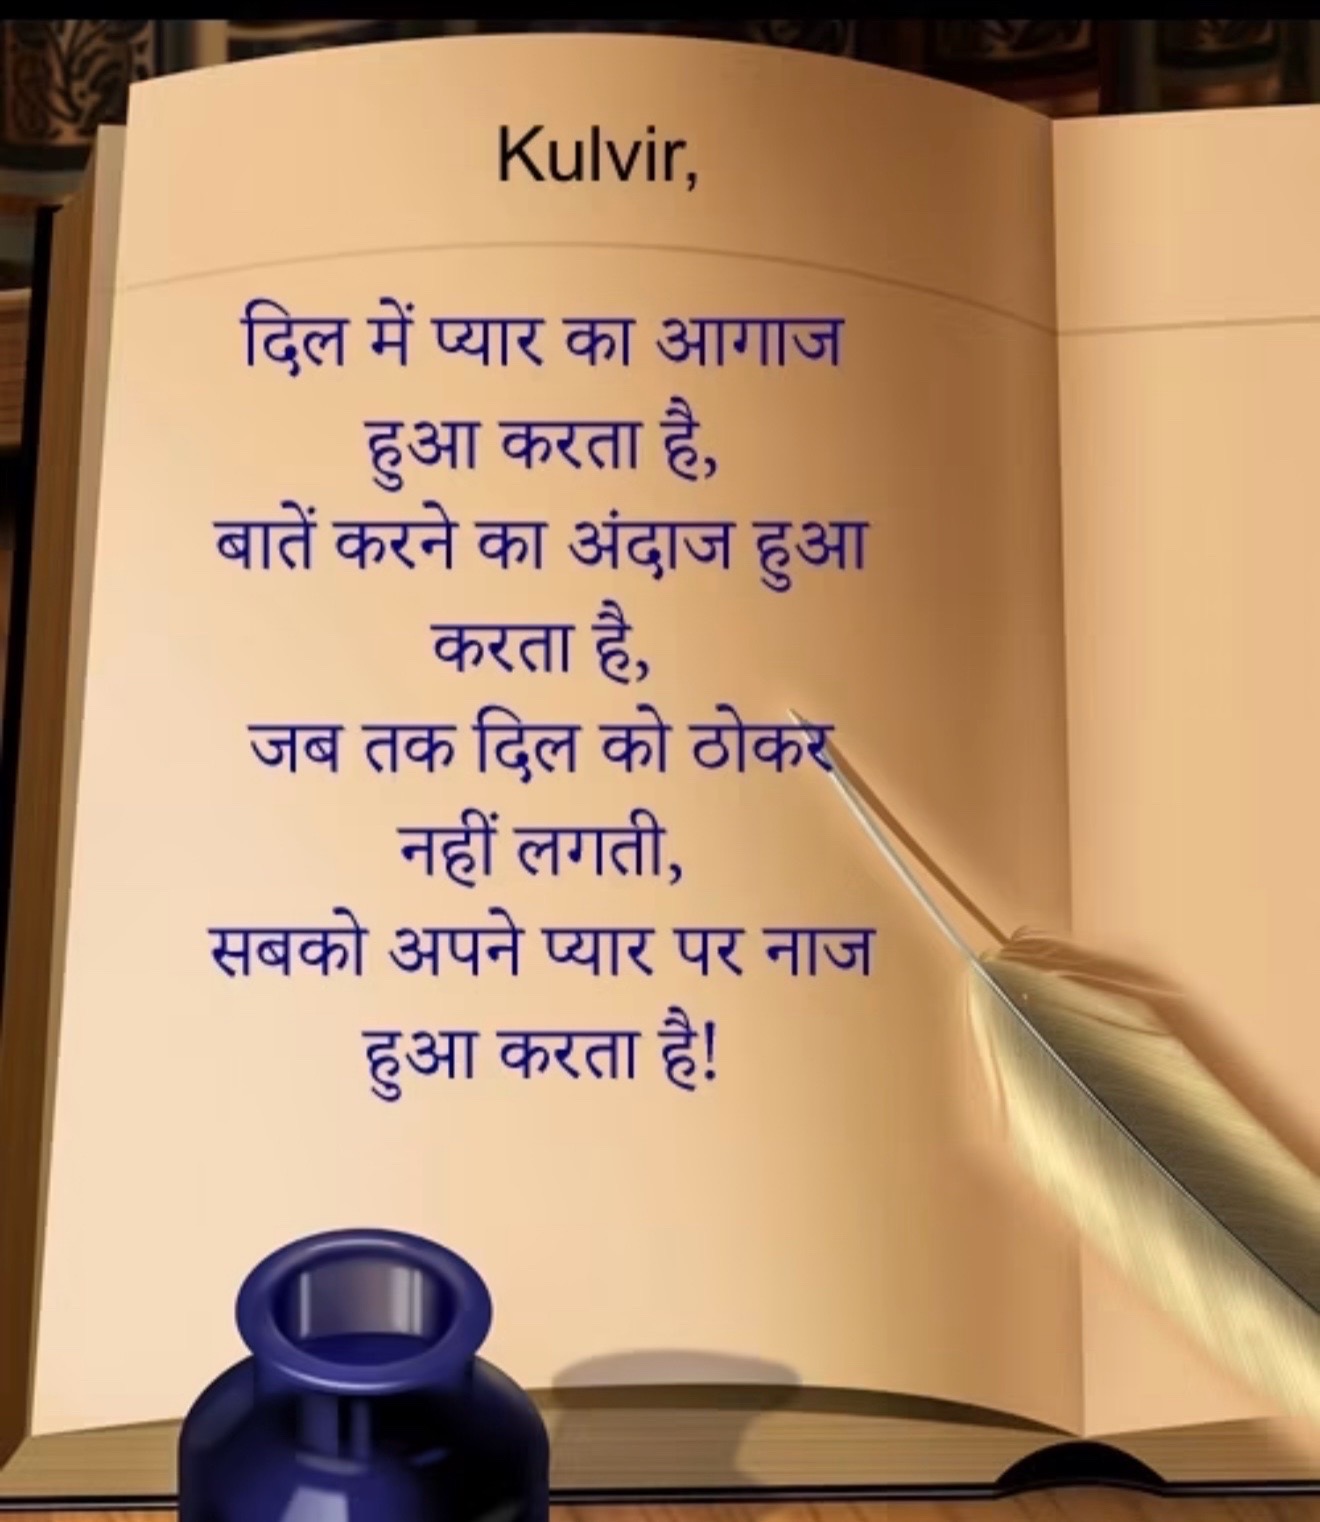 Kulvir,
दिल में प्यार का आगाज
हुआ करता है,
बातें करने का अंदाज हुआ
करता है,
जब तक दिल को ठोकर
नहीं लगती,
सबको अपने प्यार पर नाज
हुआ करता है!